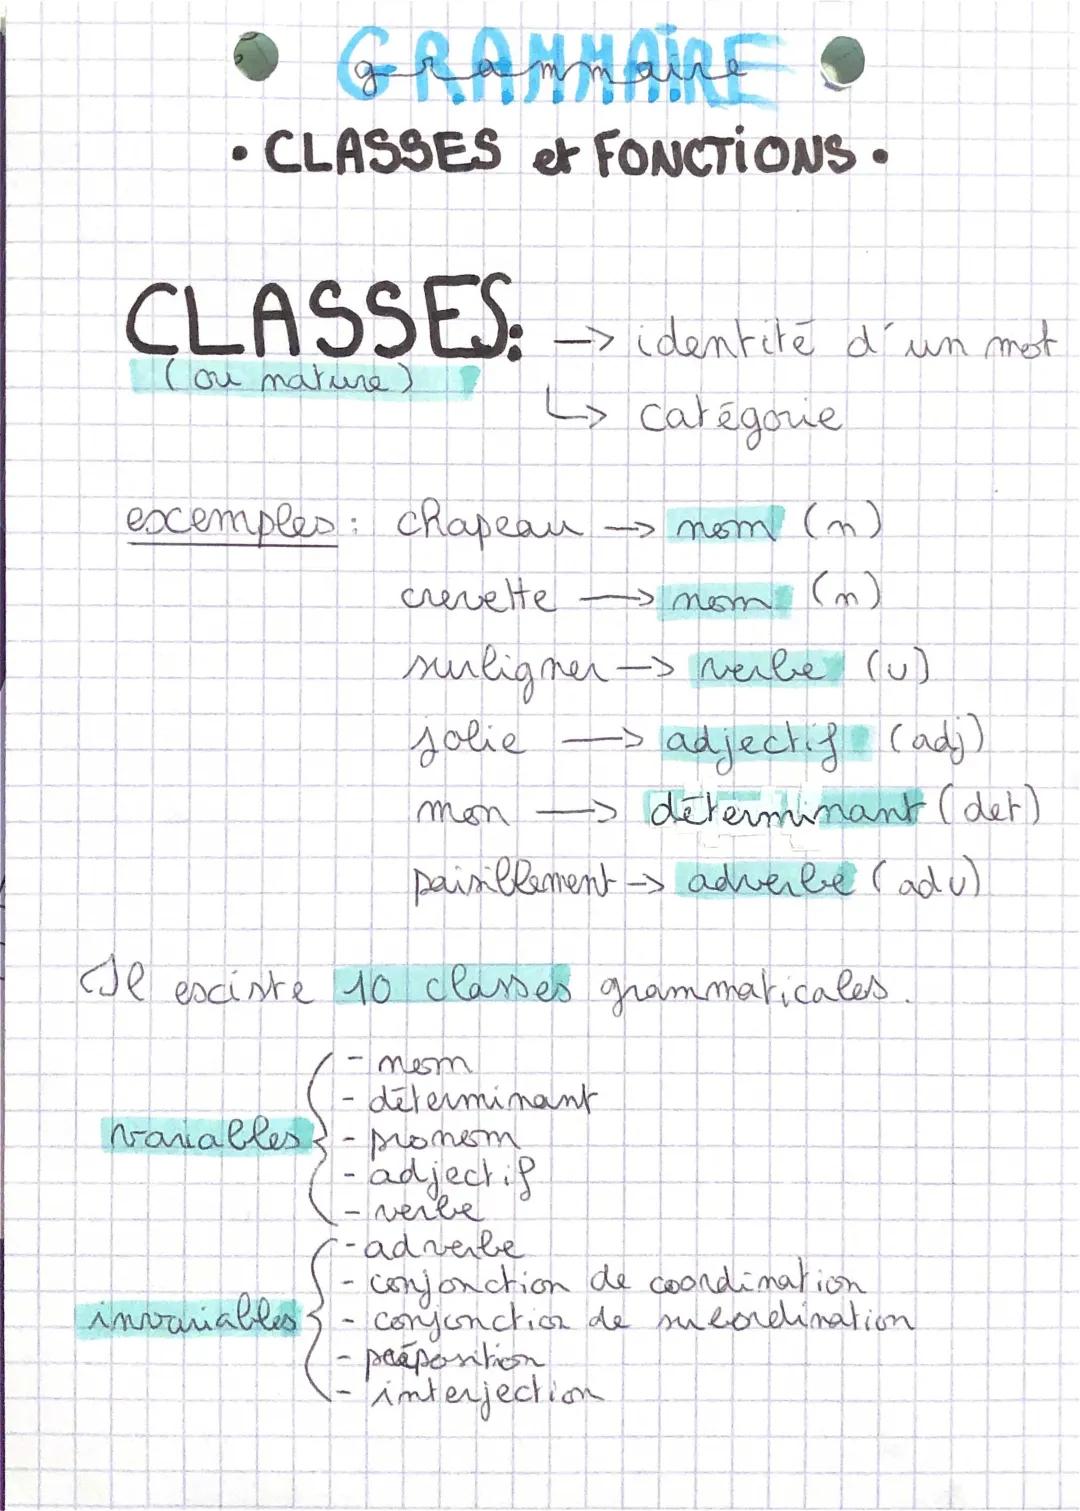 GRAMMAIRE
grammaire
• CLASSES et FONCTIONS •
CLASSES: → identité d'un mot
(ou nature)
↳ catégorie
exemples : chapeau → nom (n)
crevette → nom (n)
surligner → verbe (v)
jolie → adjectif (adj)
mon → déterminant (det)
paisiblement → adverbe (adv)
Il existe 10 classes grammaticales.
- nom
- déterminant
variables - pronom
- adjectif
- verbe
- adverbe
- conjonction de coordination
invariables - conjonction de subordination
- préposition
- interjection